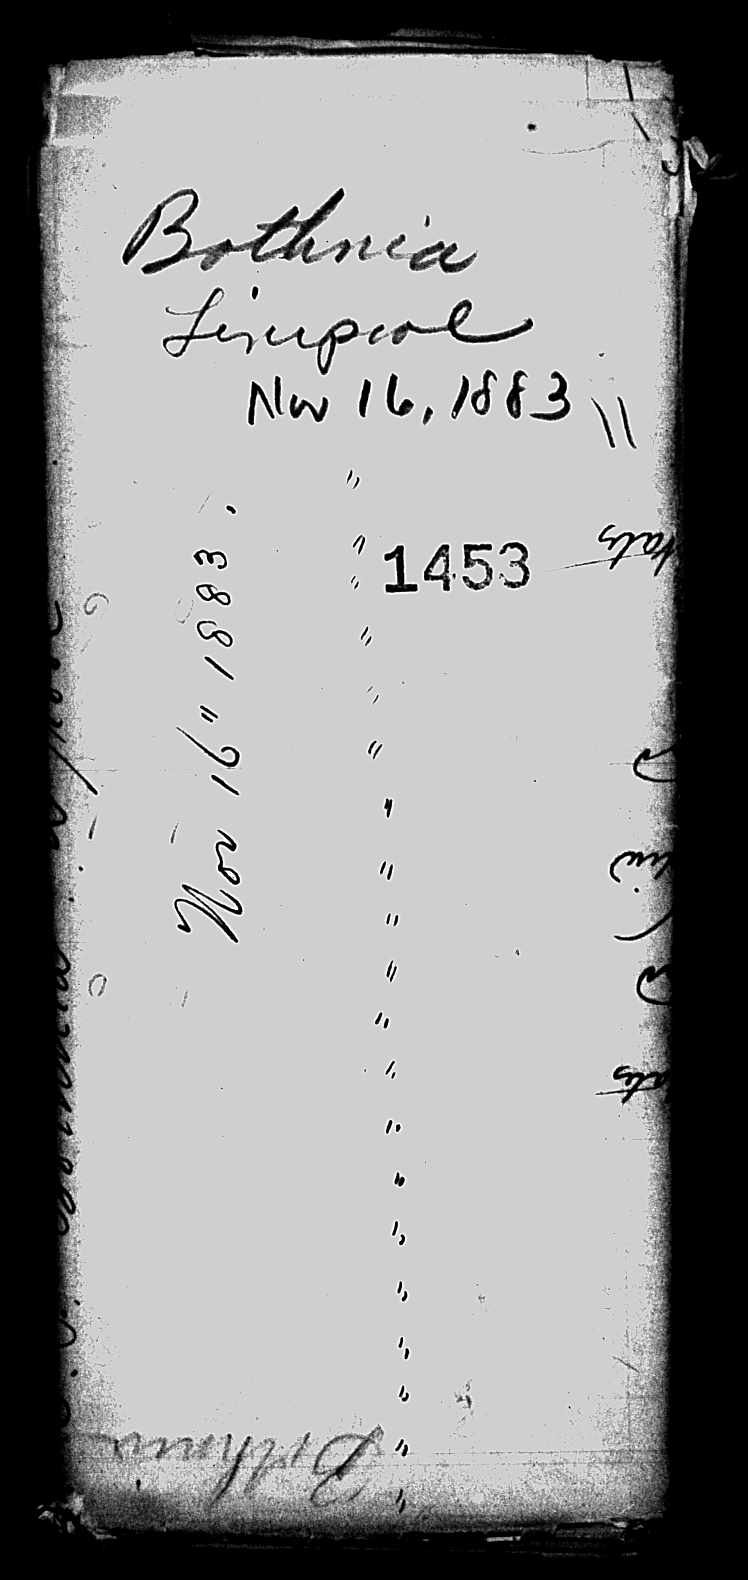 Bothnia
Liverpool
Nov 16, 1883
1453
Nov 16" 1883.
Bothnia